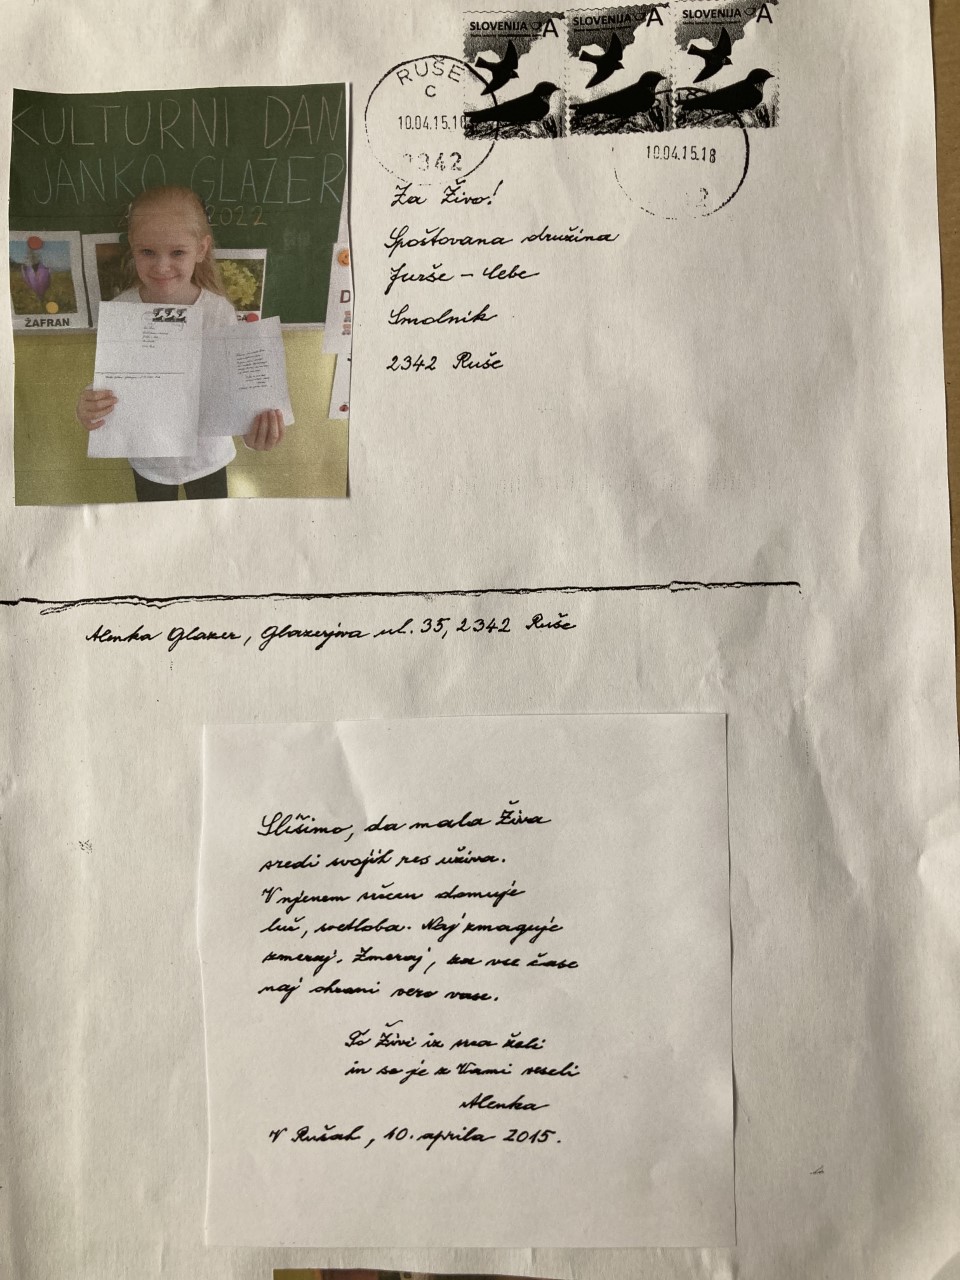 SLOVENIJA A
SLOVENIJA A
SLOVENIJA A
RUŠE
C
10.04.15.18
2342
10.04.15.18
2
KULTURNI DAN
JANKO GLAZER
2022
ŽAFRAN
Za Živo!
Spoštovana družina
Jurše - Cebe
Smolnik
2342 Ruše
Alenka Glazer, Glazerjeva ul. 35, 2342 Ruše
Slišimo, da mala Živa
sredi svojih res uživa.
V njenem srčcu domuje
luč, svetloba. Naj zmaguje
zmeraj. Zmeraj, za vse čase
naj ohrani vero vase.
To Živi iz srca želi
in se je z Vami veseli
Alenka
V Rušah, 10. aprila 2015.